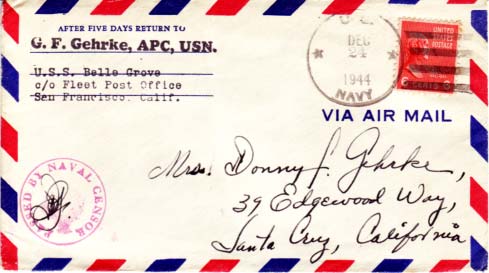 AFTER FIVE DAYS RETURN TO
G. F. Gehrke, APC, USN.
U.S.S. Belle Grove
c/o Fleet Post Office
San Francisco. Calif.
U.S.
DEC
24
1944
NAVY
UNITED
STATES
POSTAGE
CENTS
VIA AIR MAIL
PASSED BY NAVAL CENSOR
Mrs. Donny J. Gehrke,
39 Edgewood Way,
Santa Cruz, California